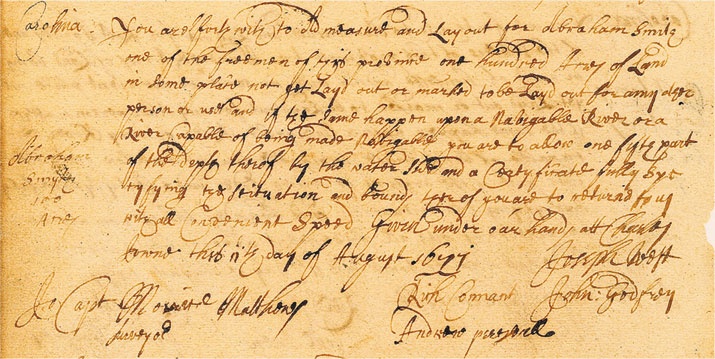 Carolina.
You are forthwith to Admeasure and Layout for Abraham Smith
one of the freemen of this province one hundred Acres of Land
in some place not yet Layd out or marked to be Layd out for any other
person or uses and if the same happen upon a Navigable River or a
River capable of being made Navigable you are to allow one fifth part
of the depth therof by the water side and a Certificate fully Spe
cifying the scituation and bounds therof you are to returne to us
with all Convenient Speed Given under our hands att Charles
towne this 11th day of August 1677
Abraham
Smyth
100
Acres
Joseph West
To Capt Mourice Mathews
surveyor
Rich Connant
John: Godfrey
Andrew percivall